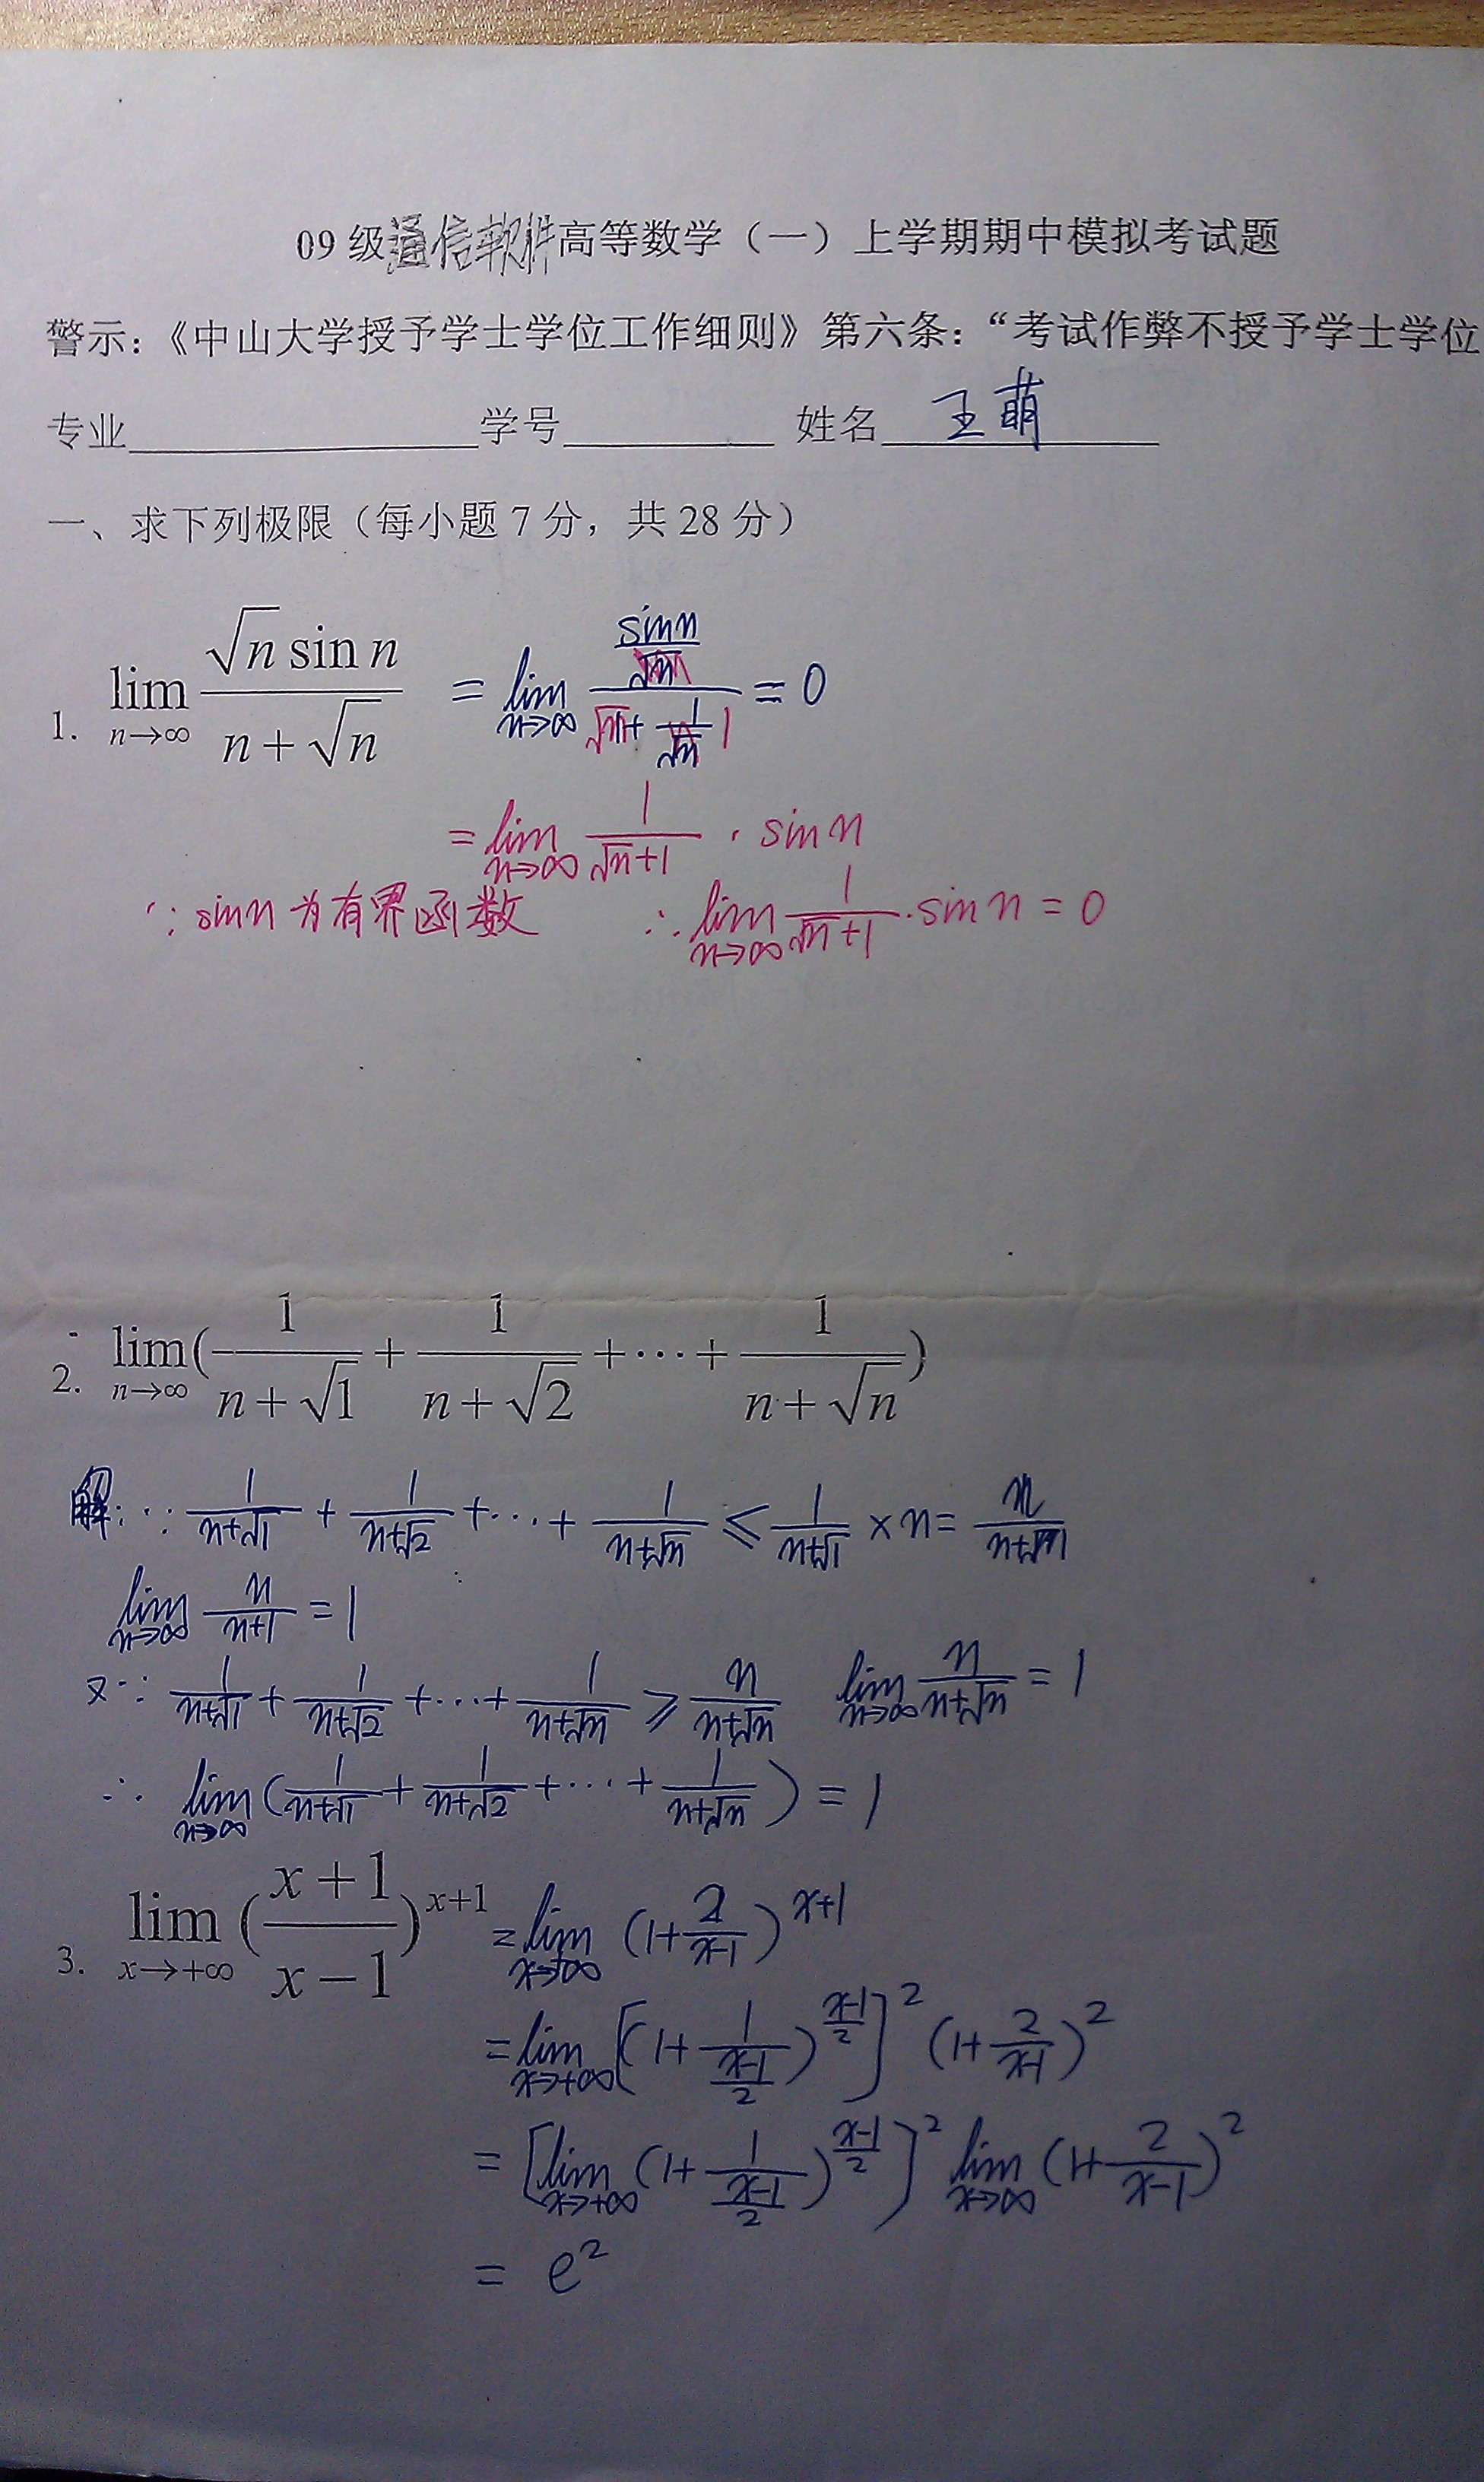 09级通信软件高等数学（一）上学期期中模拟考试题
警示：《中山大学授予学士学位工作细则》第六条：“考试作弊不授予学士学位
专业____学号____ 姓名 王萌
一、求下列极限（每小题7分，共28分）
1. lim_{n→∞} (√n sin n)/(n+√n) = lim_{n→∞} (sin n/√n)/(√n + 1/√n 1) = 0
= lim_{n→∞} 1/(√n+1) · sin n
∵ sin n 为有界函数 ∴ lim_{n→∞} 1/(√n+1) · sin n = 0
2. lim_{n→∞} (1/(n+√1) + 1/(n+√2) + ··· + 1/(n+√n))
解: ∵ 1/(n+√1) + 1/(n+√2) + ··· + 1/(n+√n) ≤ 1/(n+√1) × n = n/(n+√1)
lim_{n→∞} n/(n+1) = 1
又∵ 1/(n+√1) + 1/(n+√2) + ··· + 1/(n+√n) ≥ n/(n+√n) lim_{n→∞} n/(n+√n) = 1
∴ lim_{n→∞} (1/(n+√1) + 1/(n+√2) + ··· + 1/(n+√n)) = 1
3. lim_{x→+∞} ((x+1)/(x−1))^{x+1} = lim_{x→+∞} (1+2/(x-1))^{x+1}
= lim_{x→+∞} [(1+1/((x-1)/2))^{(x-1)/2}]^2 (1+2/(x-1))^2
= [lim_{x→+∞} (1+1/((x-1)/2))^{(x-1)/2}]^2 lim_{x→∞} (1+2/(x-1))^2
= e^2